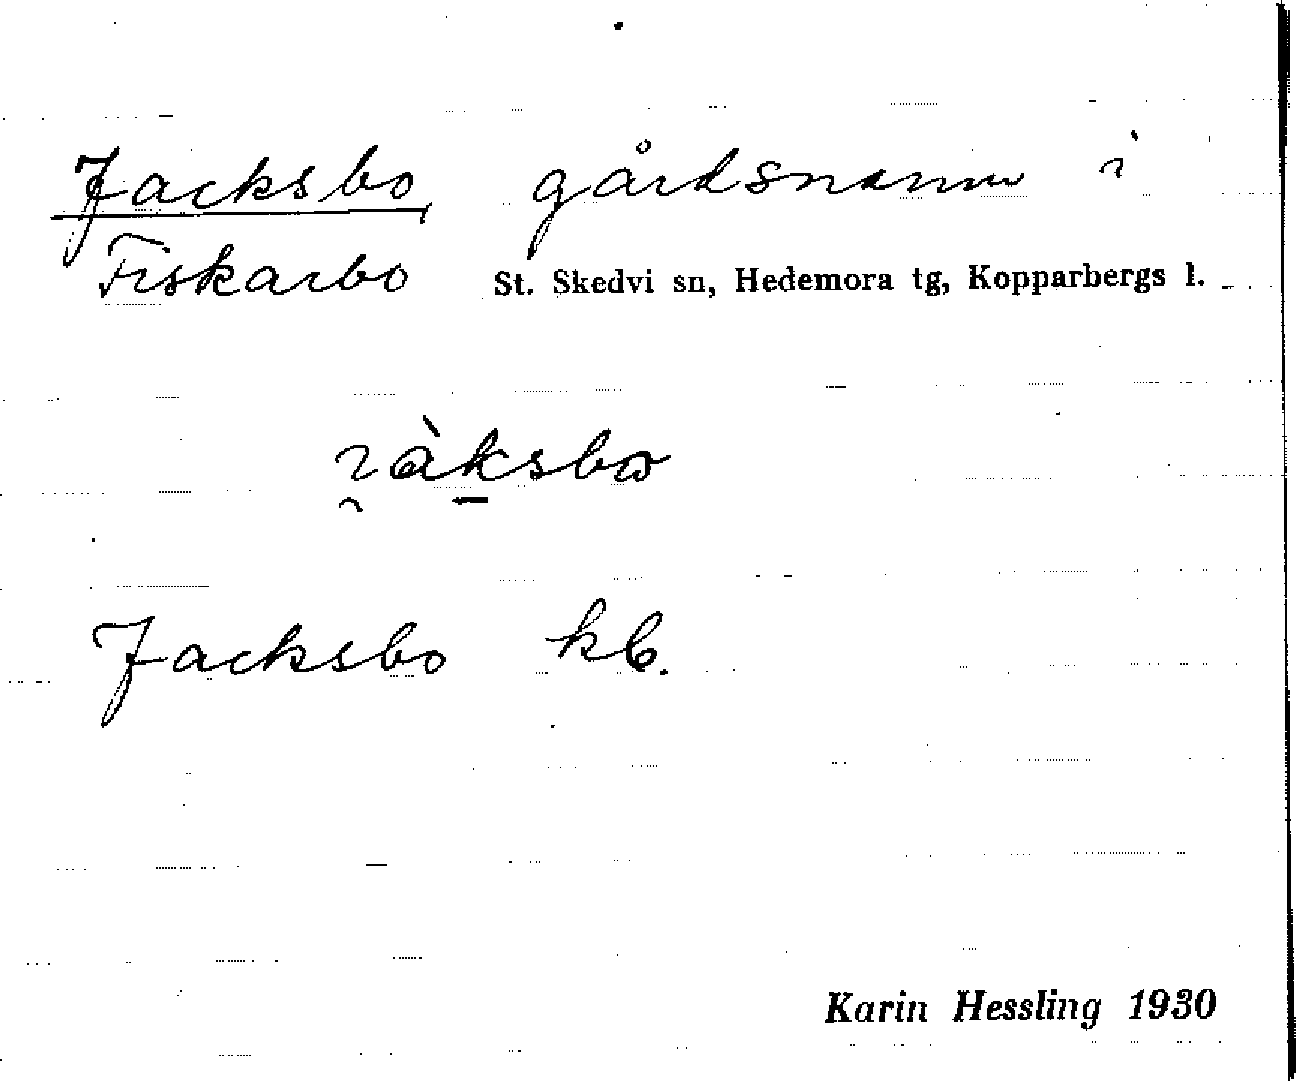 Jacksbo, gårdsnamn i
Fiskarbo St. Skedvi sn, Hedemora tg, Kopparbergs l.
Jacksbo kb.
Karin Hessling 1930